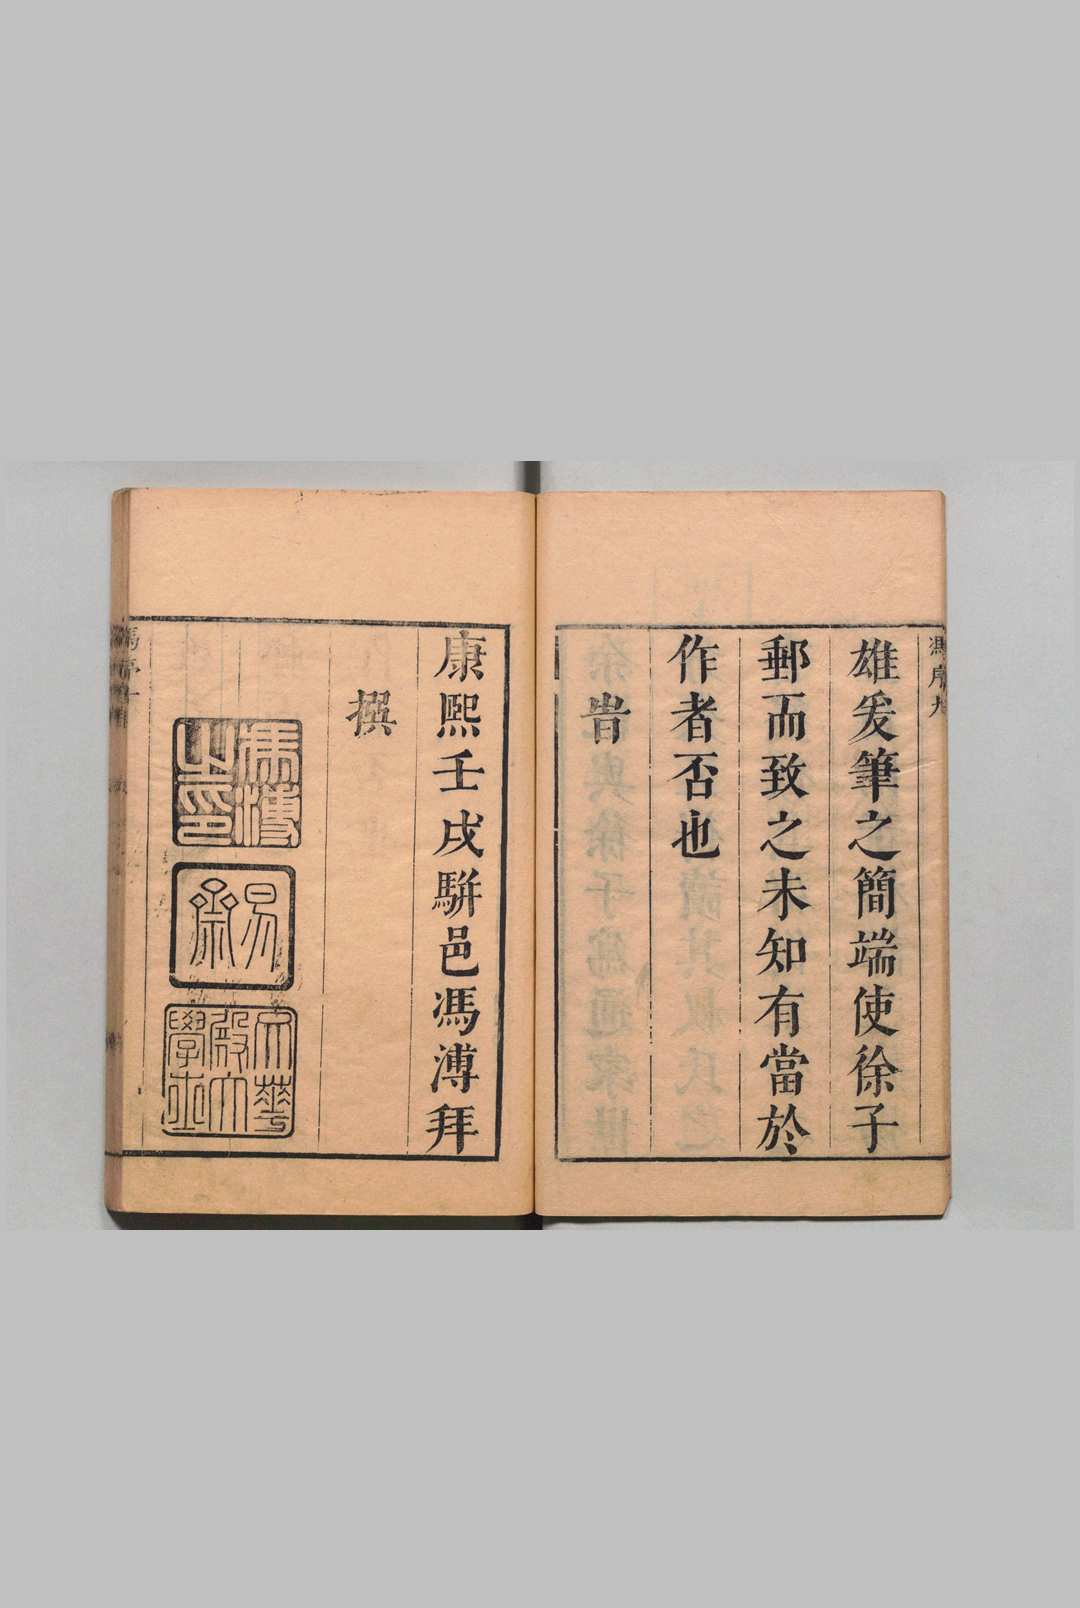 馮序九
雄爰筆之簡端使徐子
郵而致之未知有當於
作者否也
旹
康熙壬戌駢邑馮溥拜
撰
馮溥之印
易齋
文華殿大學士
馮序十